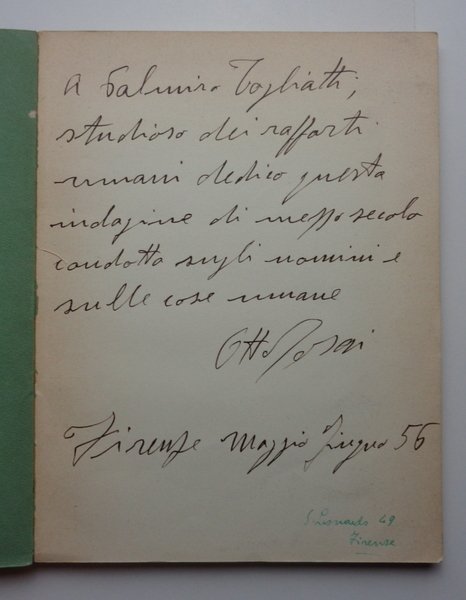 A Palmiro Togliatti,
studioso dei rapporti
umani dedico questa
indagine di mezzo secolo
condotta sugli uomini e
sulle cose umane
Otto Rosai
Firenze Maggio Giugno 56
S. Leonardo 49
Firenze